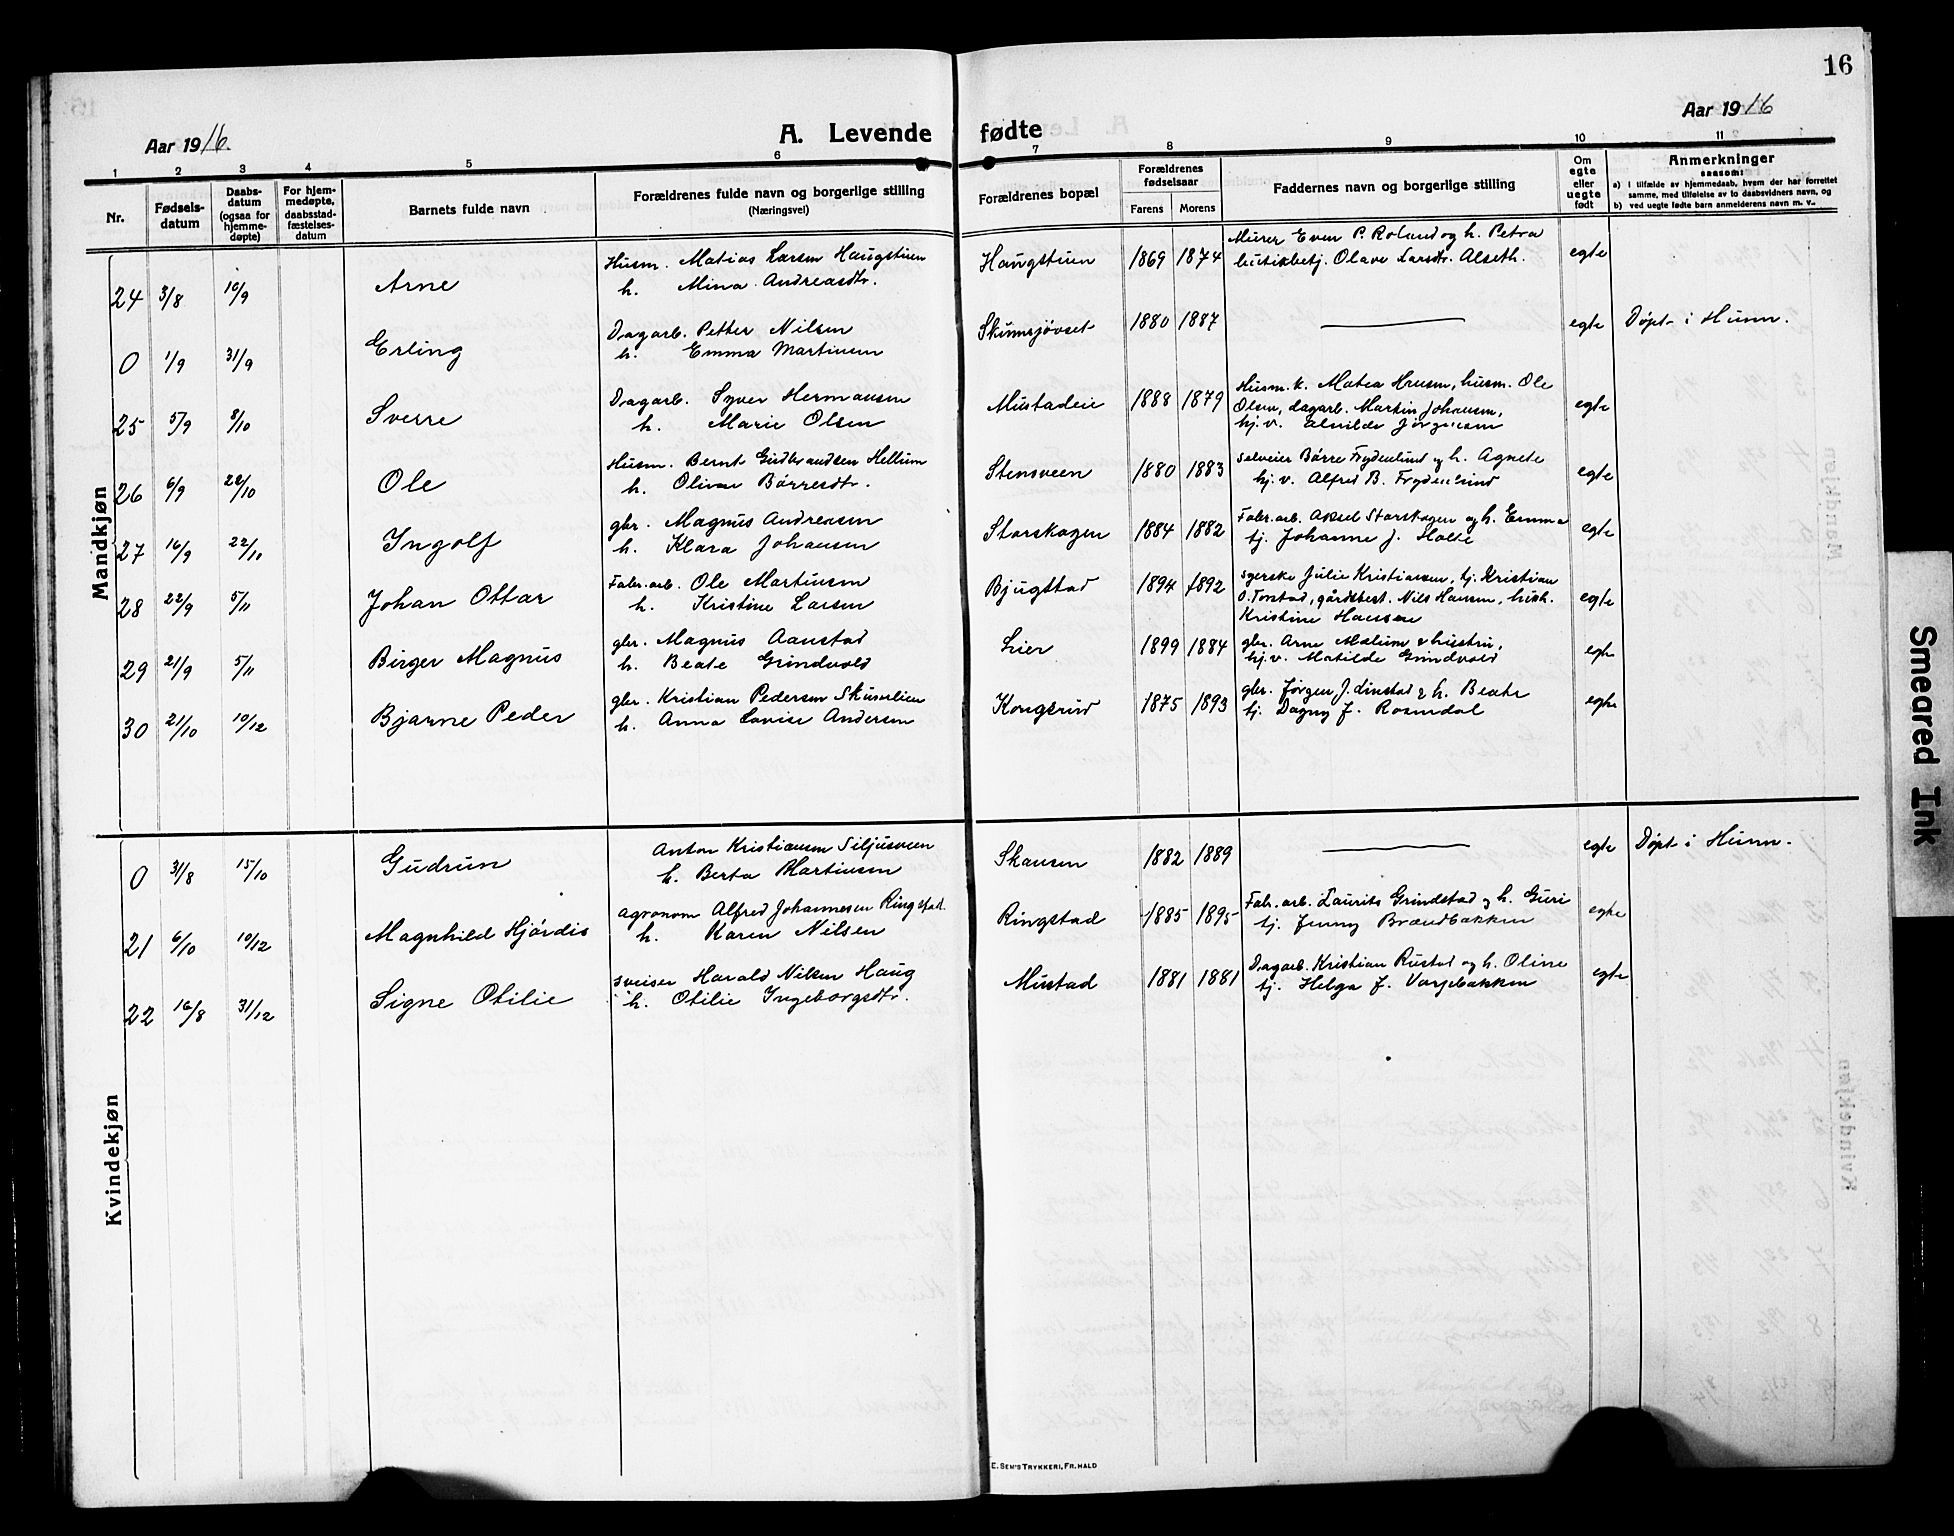 16
Aar 1916.
A. Levende fødte
Aar 1916
1 2 3 4 5 6 7 8 9 10 11
Nr.
Fødsels-
datum
Daabs-
datum
(ogsaa for
hjemme-
døpte)
For hjem-
medøpte,
daabsstad-
fæstelses-
datum
Barnets fulde navn
Forældrenes fulde navn og borgerlige stilling
(Næringsvei)
Forældrenes bopæl
Forældrenes
fødselsaar
Farens Morens
Faddernes navn og borgerlige stilling
Om
egte
eller
uegte
født
Anmerkninger
saasom:
a) i tilfælde av hjemmedaab, hvem der har forrettet
samme, med tilføielse av to daabsvidners navn, og
b) ved uegte fødte barn anmelderens navn m. v..
Mandkjøn
24 3/8 10/9 Arne
Husm. Matias Larsen Haugstuen
h. Mina Andreasdtr.
Haugstuen 1869 1874
Murer Even P. Roland og h. Petra
butikbetj. Olave Larsdtr. Alseth.
egte
0 1/9 31/9 Erling
Dagarb. Petter Nilsen
h. Emma Martinsen
Skumsjövset 1880 1887
egte Døpt i Hunn.
25 5/9 8/10 Sverre
Dagarb. Syver Hermansen
h. Marie Olsen
Mustadeie 1888 1879
Husm. k. Matea Hansen, husm. Ole
Olsen, dagarb. Martin Johansen,
hj. v. Alvilde Jørgensen
egte
26 6/9 22/10 Ole
Husm. Bernt Gudbrandsen Hellum
h. Oline Børresdtr.
Stensveen 1880 1883
selveier Børre Frydenlund og h. Agnete
hj. v. Alfred B. Frydenlund
egte
27 16/9 22/10 Ingolf
gbr. Magnus Andreasen
h. Klara Johansen
Storskogen 1884 1882
Fabr. arb. Aksel Storskogen og h. Emma
tj. Johanne J. Holte
egte
28 22/9 5/11 Johan Ottar
Fabr. arb. Ole Martinsen
h. Kristine Larsen
Bjugstad 1894 1892
syerske Julie Kristiansen, tj. Kristian
O. Torstad, gårdbest. Nils Hansen, hush.
Kristine Hansen
egte
29 21/9 5/11 Birger Magnus
gbr. Magnus Aanstad
h. Beate Grindvold
Lier 1899 1884
gbr. Arne Mælum & hustru,
hj. v. Matilde Grindvold
egte
30 21/10 10/12 Bjarne Peder
gbr. Kristian Pedersen Skuserlien
h. Anna Lovise Andersen
Kongsrud 1875 1893
gbr. Jørgen J. Linstad & h. Beate
tj. Dagny J. Rosendal
egte
Kvindekjøn
0 31/8 15/10 Gudrun
Anton Kristiansen Siljusveen
h. Berta Martinsen
Skansen 1882 1889
egte Døpt i Hunn.
21 6/10 10/12 Magnhild Hjørdis
agronom Alfred Johannesen Ringstad.
h. Karen Nilsen
Ringstad 1885 1895
Fabr. arb. Laurits Grindstad og h. Guri
tj. Jenny Brændbakken
egte
22 16/8 31/12 Signe Otilie
sveiser Harald Nilsen Haug
h. Otilie Ingeborgsdtr.
Mustad 1881 1881
Dagarb. Kristian Rustad og h. Oline
tj. Helga J. Vargebakken
egte
E. SEM'S TRYKKERI, FR. HALD
Smeared Ink